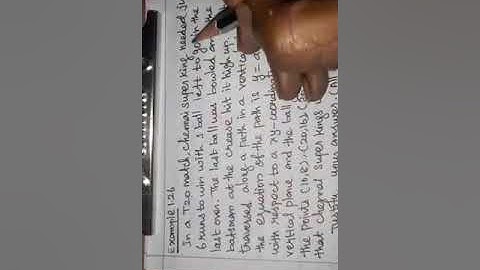 Example 1.26
In a T20 match, chennai super king needed
6 runs to win with 1 ball left to go in the
last over. The last ball was bowled and the
batsman at the crease hit it high up.
traversed along a path in a vertical
the equation of the path is y =
with respect to a xy-coordinate
vertical plane and the ball
the points (10,8), (20,16)
that chennai super kings
Justify your answer.